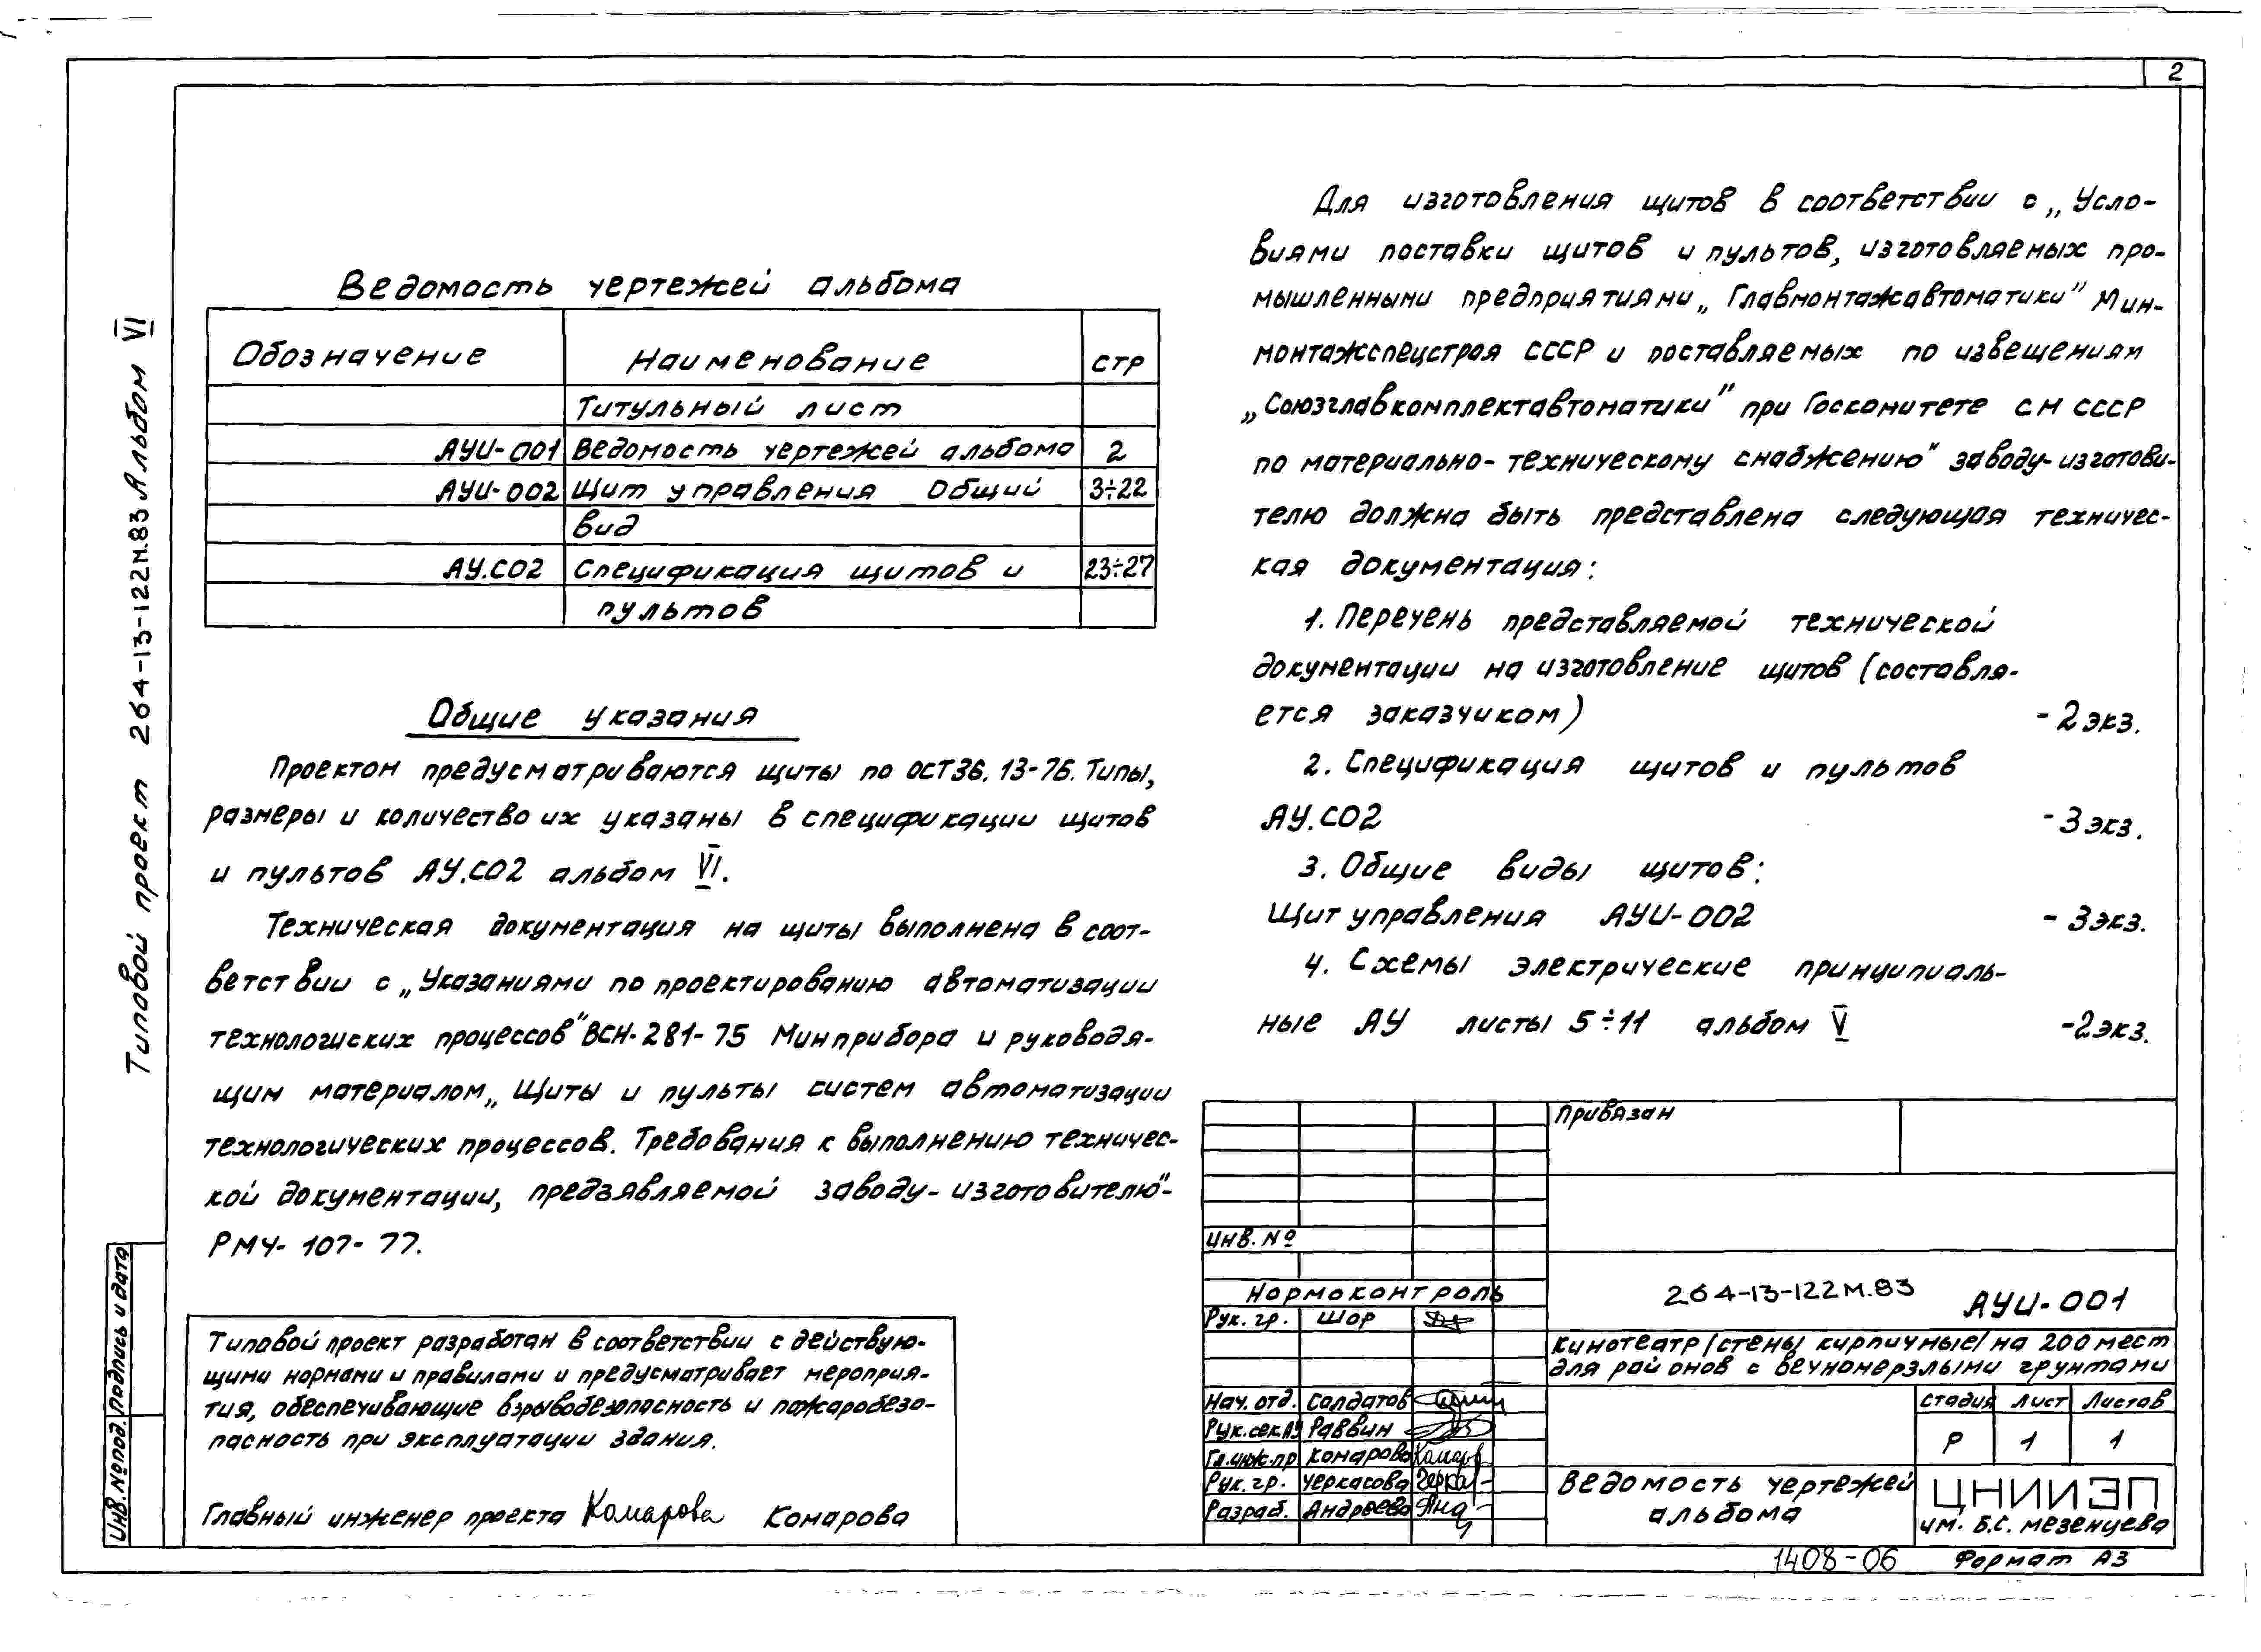 2
Типовой проект 264-13-122м.83 Альбом VI
Ведомость чертежей альбома
Обозначение Наименование стр
Титульный лист
АУИ-001 Ведомость чертежей альбома 2
АУИ-002 Щит управления Общий 3÷22
вид
АУ.СО2 Спецификация щитов и 23÷27
пультов
Общие указания
Проектом предусматриваются щиты по ОСТ36.13-76. Типы,
размеры и количество их указаны в спецификации щитов
и пультов АУ.СО2 альбом VI.
Техническая документация на щиты выполнена в соот-
ветствии с „Указаниями по проектированию автоматизации
технологиских процессов" ВСН-281-75 Минприбора и руководя-
щим материалом „Щиты и пульты систем автоматизации
технологических процессов. Требования к выполнению техничес-
кой документации, предзявляемой заводу-изготовителю"-
РМ4-107-77.
Типовой проект разработан в соответствии с действую-
щими нормами и правилами и предусматривает мероприя-
тия, обеспечивающие взрывобезопасность и пожаробезо-
пасность при эксплуатации здания.
Главный инженер проекта Комарова Комарова
Для изготовления щитов в соответствии с „Усло-
виями поставки щитов и пультов, изготовляемых про-
мышленными предприятиями „Главмонтажавтоматики" Мин-
монтажспецстроя СССР и поставляемых по извещениям
„Союзглавкомплектавтоматики" при Госкомитете СМ СССР
по материально-техническому снабжению" заводу-изготови-
телю должна быть представлена следующая техничес-
кая документация:
1. Перечень представляемой технической
документации на изготовление щитов (составля-
ется заказчиком) -2 экз.
2. Спецификация щитов и пультов
АУ.СО2 -3 экз.
3. Общие виды щитов:
Щит управления АУИ-002 -3 экз.
4. Схемы электрические принципиаль-
ные АУ листы 5÷11 альбом V -2 экз.
Привязан
Инв. №
Нормоконтроль
Рук. гр. Шор
264-13-122м.83 АУИ-001
Кинотеатр /стены кирпичные/ на 200 мест
для районов с вечномерзлыми грунтами
Нач. отд. Солдатов
Рук. сек. АУ Раввин
Гл. инж. пр Комарова Комаров
Рук. гр. Черкасова
Разраб. Андреева
Стадия Лист Листов
Р 1 1
Ведомость чертежей
альбома
ЦНИИЭП
им. Б.С. Мезенцева
1408-06 Формат А3
Инв. № под. Подпись и дата